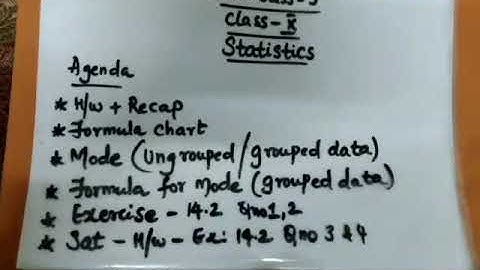 Class - X
Statistics
Agenda
* H/w + Recap
* Formula chart
* Mode (Ungrouped / grouped data)
* Formula for Mode (grouped data)
* Exercise - 14.2 Qno 1, 2
* Sat - H/w - Ex: 14.2 Qno 3 & 4